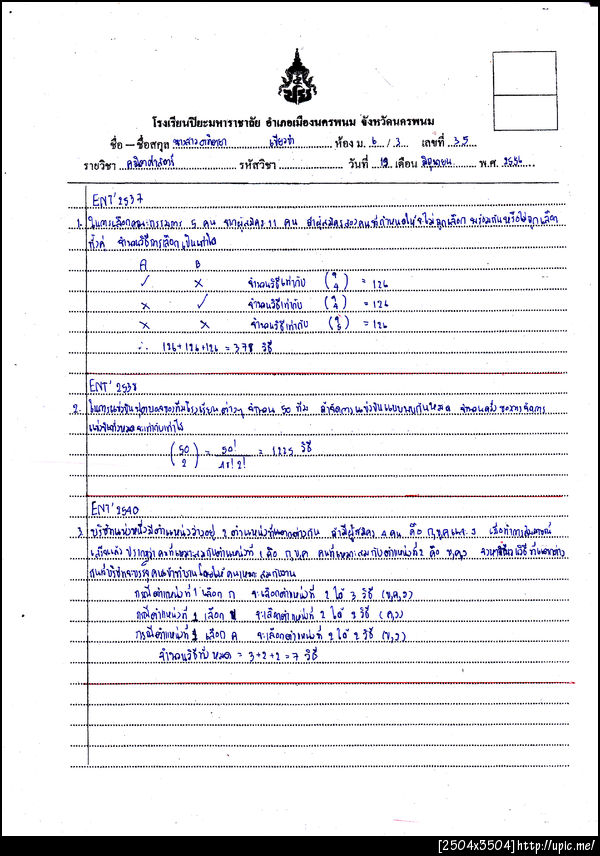 โรงเรียนปิยะมหาราชาลัย อำเภอเมืองนครพนม จังหวัดนครพนม
ชื่อ – ชื่อสกุล นางสาว ห้อง ม. 6 / 3 เลขที่ 35
รายวิชา คณิตศาสตร์ รหัสวิชา วันที่ 12 เดือน มิถุนายน พ.ศ. 2556
ENT' 2537
1. ในการเลือกคณะกรรมการ 5 คน จากผู้สมัคร 11 คน ถ้าผู้สมัครสองคนที่กำหนดให้จะไม่ถูกเลือก พร้อมกันหรือไม่ถูกเลือก
ทั้งคู่ จำนวนวิธีการเลือกเป็นเท่าใด
A B
✓ × จำนวนวิธีเท่ากับ (9 4) = 126
× ✓ จำนวนวิธีเท่ากับ (9 4) = 126
× × จำนวนวิธีเท่ากับ (9 5) = 126
∴ 126+126+126 = 378 วิธี
ENT' 2538
2. ในการแข่งขันฟุตบอลของทีมโรงเรียนต่างๆ จำนวน 50 ทีม ถ้าจัดการแข่งขันแบบพบกันหมด จำนวนครั้งของการจัดการ
แข่งขันทั้งหมดจะเท่ากับเท่าใด
(50 2) = 50! / 48! 2! = 1225 วิธี
ENT' 2540
3. บริษัทแห่งหนึ่งมีตำแหน่งว่างอยู่ 2 ตำแหน่งที่แตกต่างกัน ถ้ามีผู้สมัคร 4 คน คือ ก,ข,ค และ ง เมื่อทำการสัมภาษณ์
เสร็จแล้ว ปรากฏว่า คนที่เหมาะสมกับตำแหน่งที่ 1 คือ ก,ข,ค คนที่เหมาะสมกับตำแหน่งที่ 2 คือ ข,ค,ง จงหาวิธีที่แตกต่าง
กันที่บริษัทจะบรรจุคนเข้าทำงานโดยให้คนเหมาะสมกับงาน
กรณีตำแหน่งที่ 1 เลือก ก จะเลือกตำแหน่งที่ 2 ได้ 3 วิธี (ข,ค,ง)
กรณีตำแหน่งที่ 1 เลือก ข จะเลือกตำแหน่งที่ 2 ได้ 2 วิธี (ค,ง)
กรณีตำแหน่งที่ 1 เลือก ค จะเลือกตำแหน่งที่ 2 ได้ 2 วิธี (ข,ง)
จำนวนวิธีทั้งหมด = 3+2+2 = 7 วิธี
[2504x3504]http://upic.me/